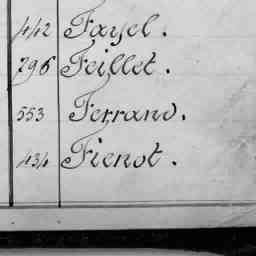 442 Fayel.
796 Feillet.
553 Ferrand.
434 Fienot.